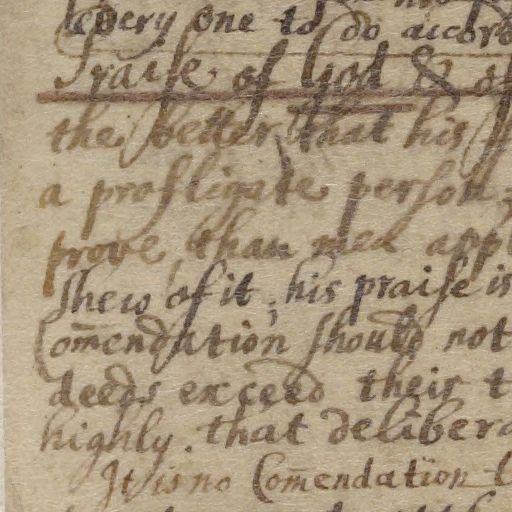 every one to do accor
Praise of God & of
the better that his
a profligate person,
prove than men app
shew of it; his praise is
Com̃endation should not
deeds exceed their t
highly. that delibera
It is no Com̃endation t